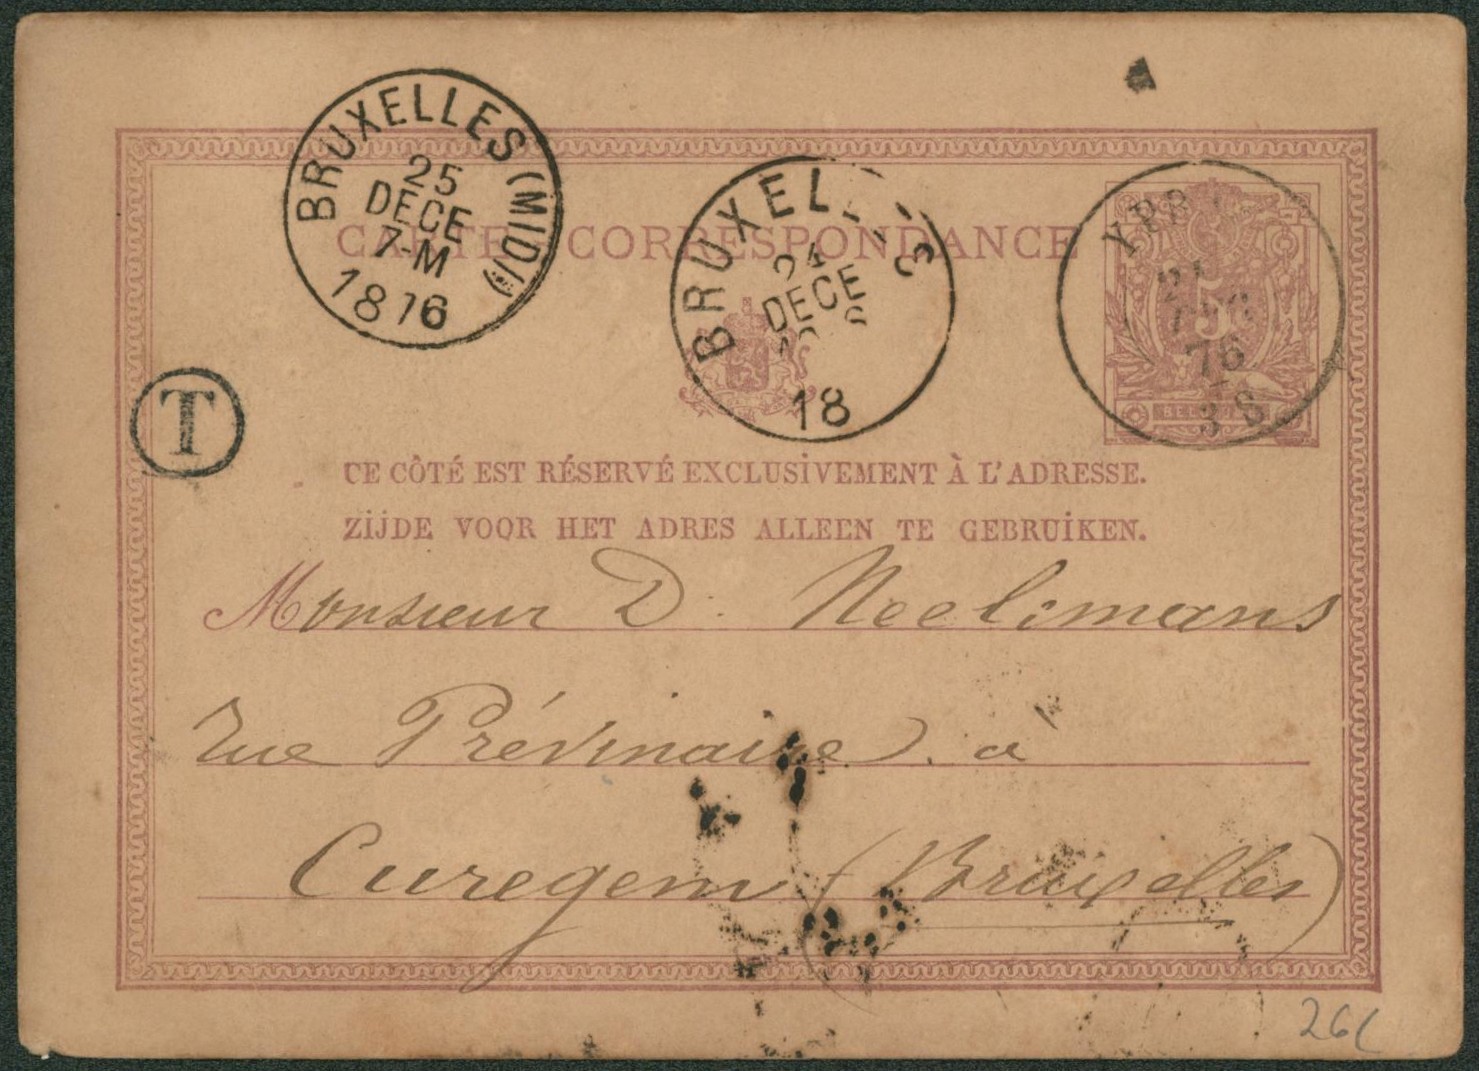 BRUXELLES (MIDI)
25
DECE
7-M
1876
BRUXEL
24
DECE
18
76
3 S
5
CARTE CORRESPONDANCE
T
CE CÔTÉ EST RÉSERVÉ EXCLUSIVEMENT À L'ADRESSE.
ZIJDE VOOR HET ADRES ALLEEN TE GEBRUIKEN.
Monsieur D. Neelemans
rue Prévinaire. a
Curegem (Bruxelles)